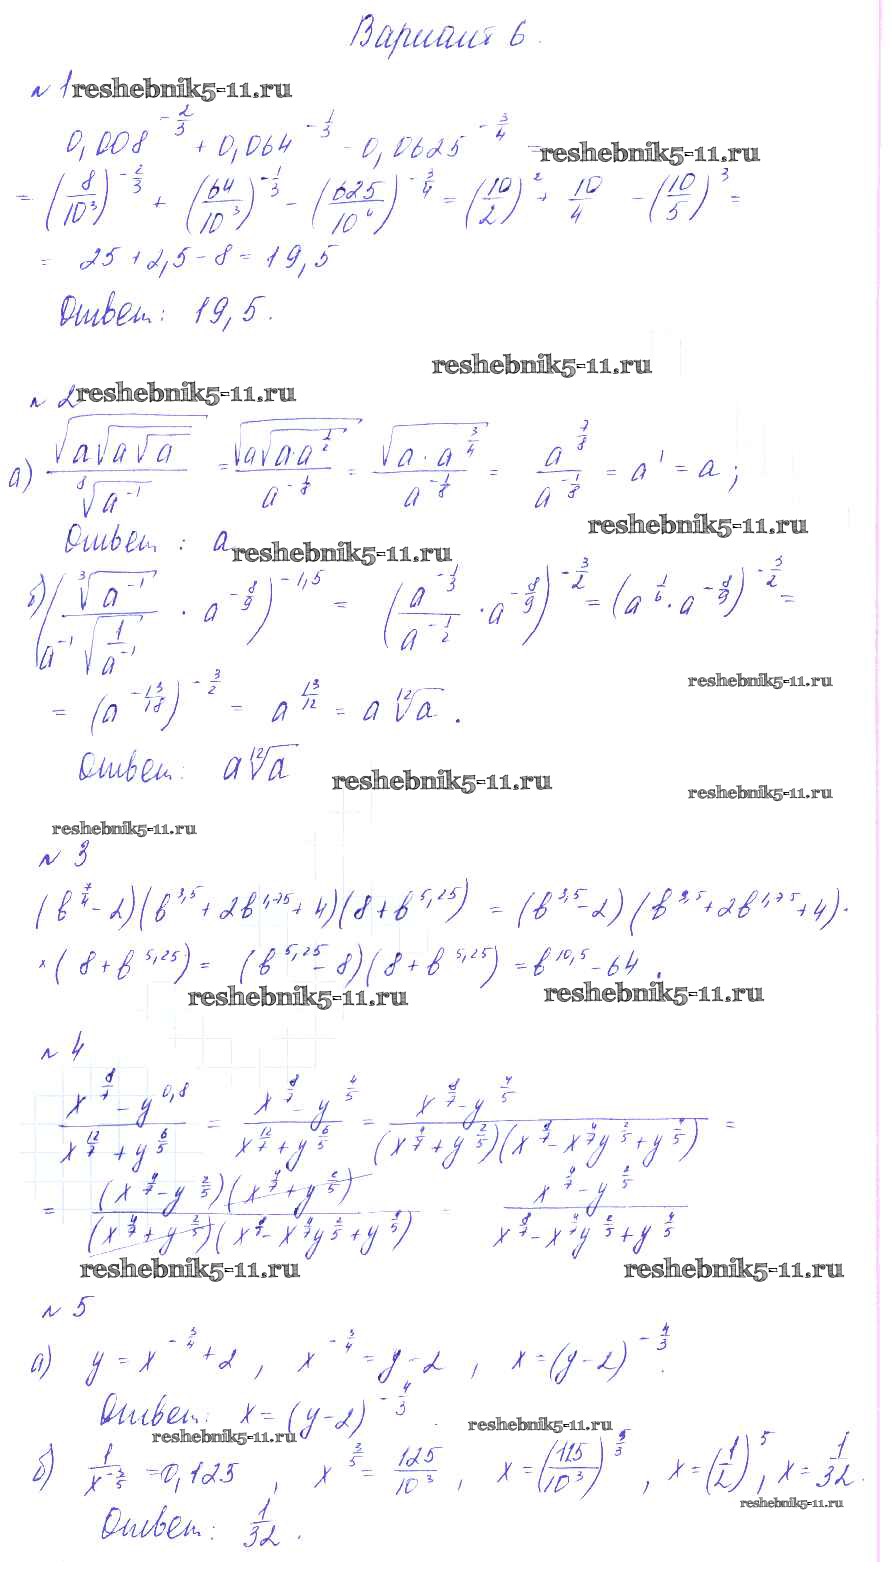 Вариант 6.
№ 1 reshebnik5-11.ru
0,008^(-2/3) + 0,064^(-1/3) - 0,0625^(-3/4) = reshebnik5-11.ru
= (8/10³)^(-2/3) + (64/10³)^(-1/3) - (625/10⁴)^(-3/4) = (10/2)² + 10/4 - (10/5)³ =
= 25 + 2,5 - 8 = 19,5
Ответ: 19,5.
reshebnik5-11.ru
№ 2 reshebnik5-11.ru
а) √(a√(a√a)) / ⁸√(a⁻¹) = √(a√(a·a^(1/2))) / a^(-1/8) = √(a · a^(3/4)) / a^(-1/8) = a^(7/8) / a^(-1/8) = a¹ = a;
reshebnik5-11.ru
Ответ: a reshebnik5-11.ru
б) (³√(a⁻¹) / (a⁻¹√(1/a⁻¹)) · a^(-8/9))^(-1,5) = (a^(-1/3) / a^(-1/2) · a^(-8/9))^(-3/2) = (a^(1/6) · a^(-8/9))^(-3/2) =
reshebnik5-11.ru
= (a^(-13/18))^(-3/2) = a^(13/12) = a ¹²√a.
Ответ: a ¹²√a
reshebnik5-11.ru
reshebnik5-11.ru
reshebnik5-11.ru
№ 3
(b^(7/4) - 2)(b^(3,5) + 2b^(1,75) + 4)(8 + b^(5,25)) = (b^(3,5) - 2)(b^(3,5) + 2b^(1,75) + 4)·
×(8 + b^(5,25)) = (b^(5,25) - 8)(8 + b^(5,25)) = b^(10,5) - 64.
reshebnik5-11.ru reshebnik5-11.ru
№ 4
(x^(8/7) - y^(0,8)) / (x^(12/7) + y^(6/5)) = (x^(8/7) - y^(4/5)) / (x^(12/7) + y^(6/5)) = (x^(8/7) - y^(4/5)) / ((x^(4/7) + y^(2/5))(x^(8/7) - x^(4/7)y^(2/5) + y^(4/5))) =
= (x^(4/7) - y^(2/5))(x^(4/7) + y^(2/5)) / ((x^(4/7) + y^(2/5))(x^(8/7) - x^(4/7)y^(2/5) + y^(4/5))) = (x^(4/7) - y^(2/5)) / (x^(8/7) - x^(4/7)y^(2/5) + y^(4/5))
reshebnik5-11.ru reshebnik5-11.ru
№ 5
а) y = x^(-3/4) + 2, x^(-3/4) = y - 2, x = (y - 2)^(-4/3).
Ответ: x = (y - 2)^(-4/3).
reshebnik5-11.ru reshebnik5-11.ru
б) 1/x^(-3/5) = 0,125, x^(3/5) = 125/10³, x = (125/10³)^(5/3), x = (1/2)⁵, x = 1/32.
reshebnik5-11.ru
Ответ: 1/32.